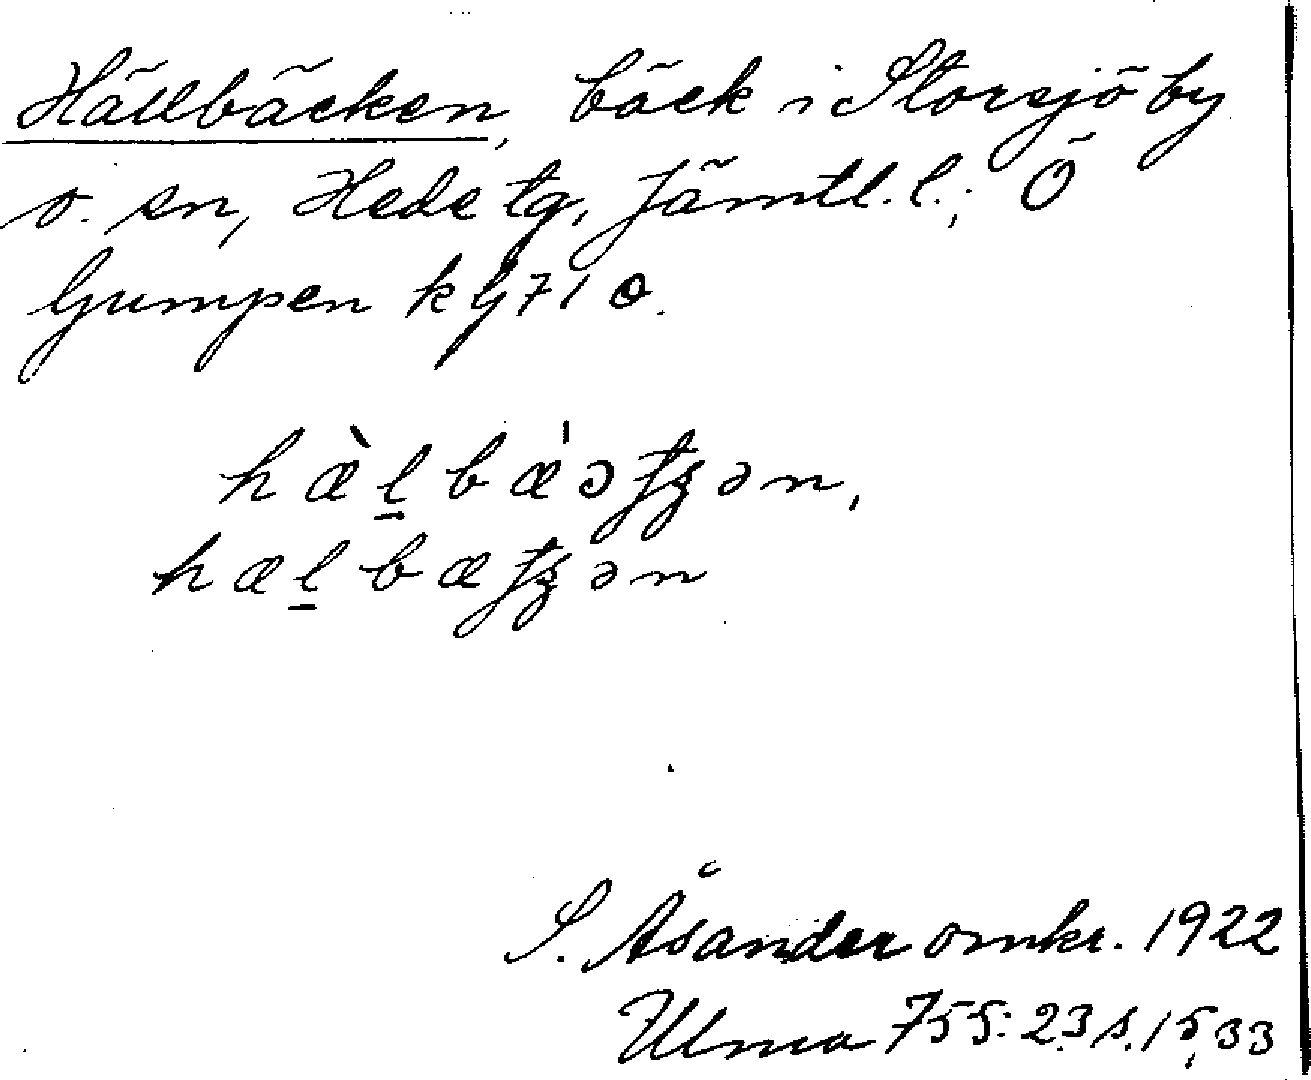 Hällbäcken, bäck i Storsjö by
o. sn, Hede tg, Jämtl. l.; Ö
Gumpen k G71 o.
hæ̀l̲bæ̍ɔtʒən,
hæl̲bætʒən
S. Åsander omkr. 1922
Ulma 755:23 s. 15, 33